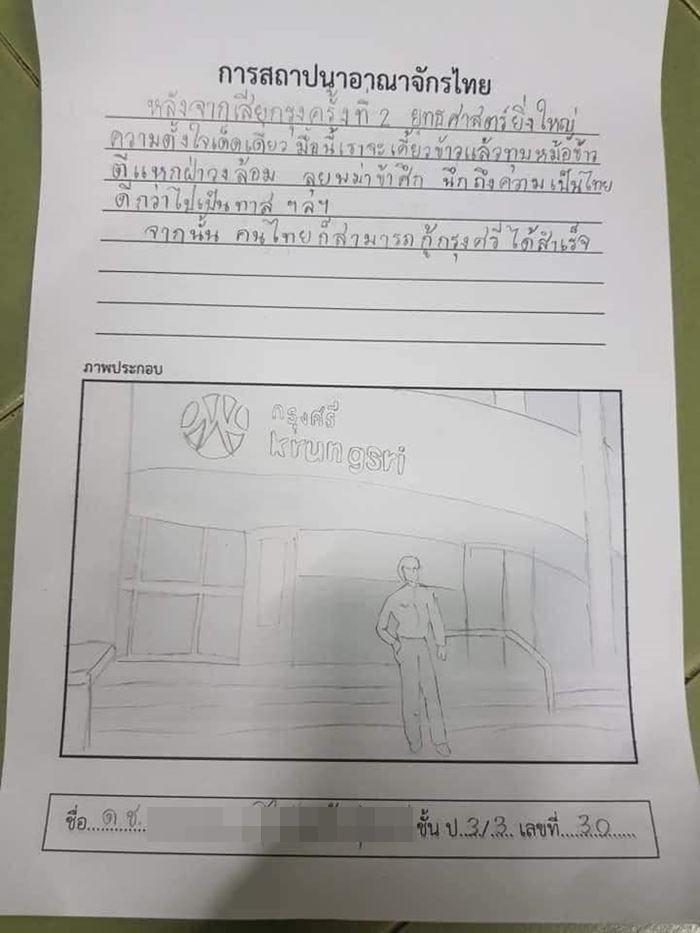 การสถาปนาอาณาจักรไทย
หลังจากเสียกรุงครั้งที่ 2 ยุทธศาสตร์ยิ่งใหญ่
ความตั้งใจเด็ดเดี่ยว มื้อนี้เราจะเคี้ยวข้าวแล้วทุบหม้อข้าว
ตีแหกฝ่าวงล้อม ลุยพม่าข้าศึก นึกถึงความเป็นไทย
ดีกว่าไปเป็นทาส ฯลฯ
จากนั้น คนไทยก็สามารถกู้กรุงศรีได้สำเร็จ
ภาพประกอบ
กรุงศรี
krungsri
ชื่อ..ด.ช. ชั้น ป.3/3. เลขที่....30......